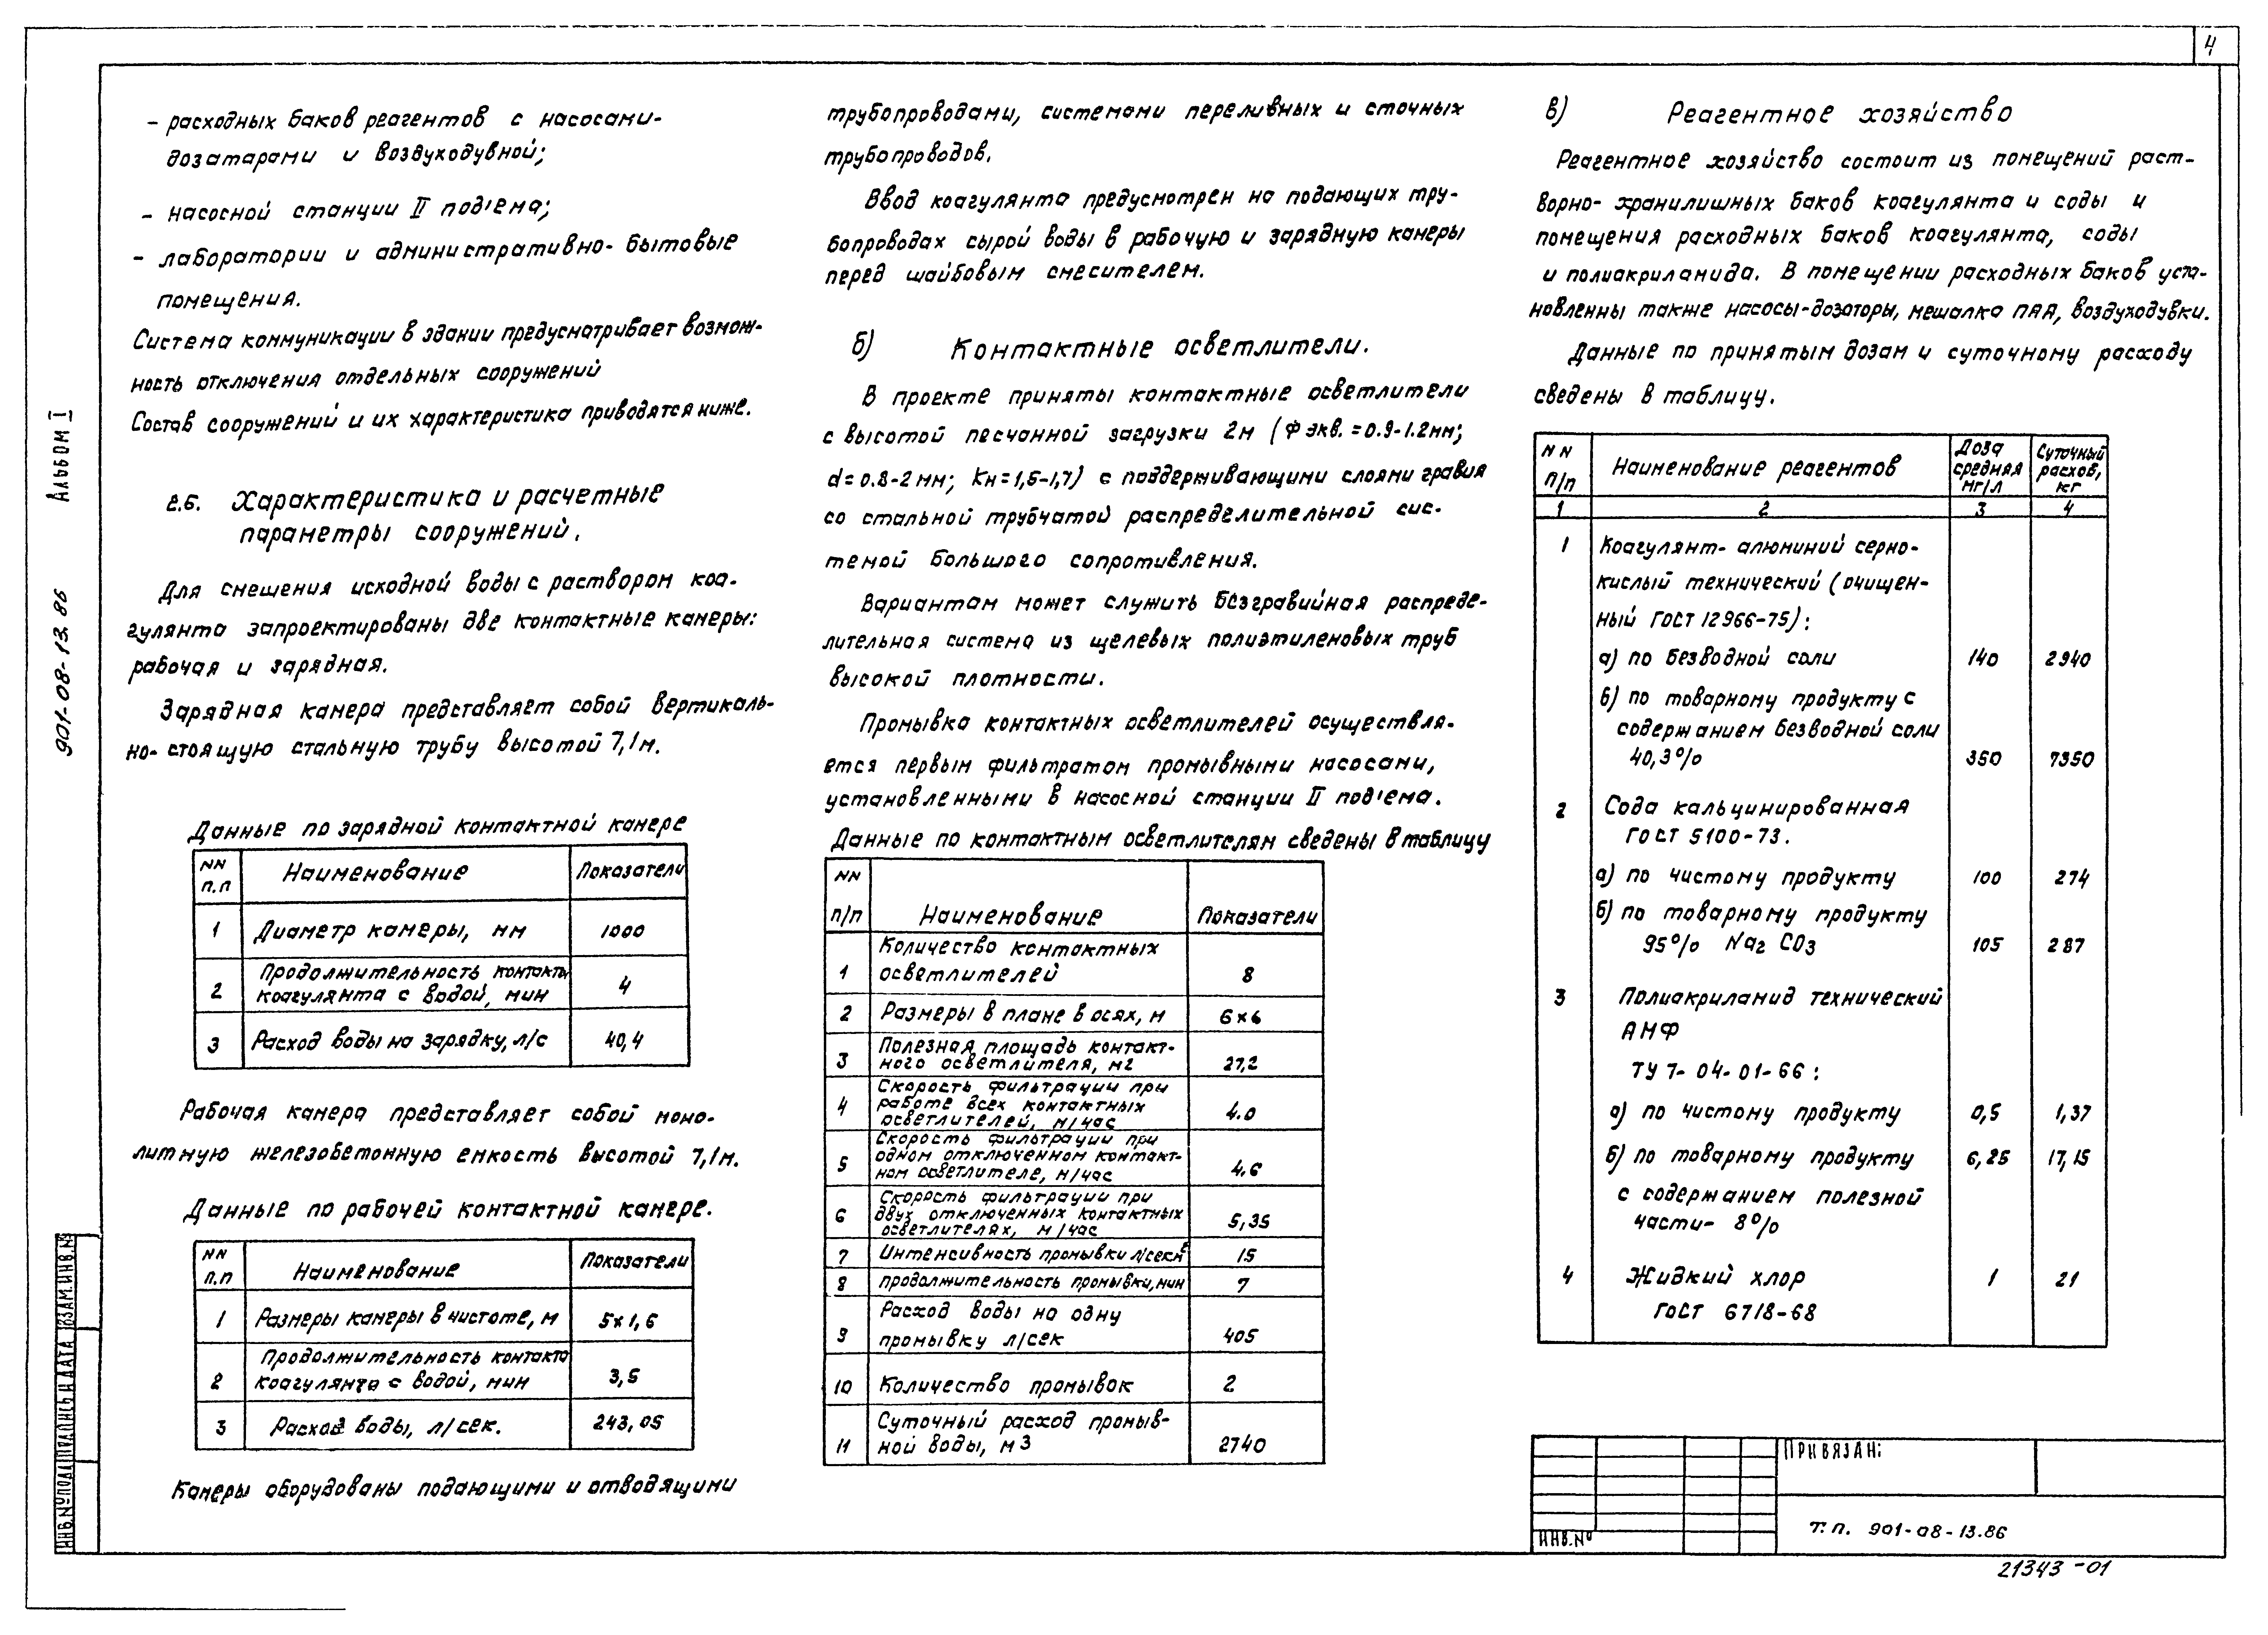 4
- расходных баков реагентов с насосами-
дозатарами и воздуходувной;
- насосной станции II под'ема;
- лаборатории и административно- бытовые
помещения.
Система коммуникации в здании предусматривает возмож-
ность отключения отдельных сооружений
Состав сооружений и их характеристика приводятся ниже.
2.6. Характеристика и расчетные
параметры сооружений.
Для смешения исходной воды с раствором коа-
гулянта запроектированы две контактные камеры:
рабочая и зарядная.
Зарядная камера представляет собой вертикаль-
но- стоящую стальную трубу высотой 7,1м.
Данные по зарядной контактной камере
NN п.п Наименование Показатели
1 Диаметр камеры, мм 1000
2 Продолжительность контакта
коагулянта с водой, мин 4
3 Расход воды на зарядку, л/с 40,4
Рабочая камера представляет собой моно-
литную железобетонную емкость высотой 7,1м.
Данные по рабочей контактной камере.
NN п.п Наименование Показатели
1 Размеры камеры в чистоте, м 5×1,6
2 Продолжительность контакта
коагулянта с водой, мин 3,5
3 Расход воды, л/сек. 243,05
Камеры оборудованы подающими и отводящими
трубопроводами, системами переливных и сточных
трубопроводов.
Ввод коагулянта предусмотрен на подающих тру-
бопроводах сырой воды в рабочую и зарядную камеры
перед шайбовым смесителем.
б) Контактные осветлители.
В проекте приняты контактные осветлители
с высотой песчанной загрузки 2м (Ф экв. = 0.9-1.2мм;
d = 0.8-2 мм; Кн = 1,5-1,7) с поддерживающими слоями гравия
со стальной трубчатой распределительной сис-
темой большого сопротивления.
Вариантам может служить безгравийная распреде-
лительная система из щелевых полиэтиленовых труб
высокой плотности.
Промывка контактных осветлителей осуществля-
ется первым фильтратом промывными насосами,
установленными в насосной станции II под'ема.
Данные по контактным осветлителям сведены в таблицу
NN п/п Наименование Показатели
1 Количество контактных
осветлителей 8
2 Размеры в плане в осях, м 6×6
3 Полезная площадь контакт-
ного осветлителя, м2 27,2
4 Скорость фильтрации при
работе всех контактных
осветлителей, м/час 4.0
5 Скорость фильтрации при
одном отключенном контакт-
ном осветлителе, м/час 4.6
6 Скорость фильтрации при
двух отключенных контактных
осветлителях, м/час 5,35
7 Интенсивность промывки л/секм² 15
8 продолжительность промывки, мин 7
9 Расход воды на одну
промывку л/сек 405
10 Количество промывок 2
11 Суточный расход промыв-
ной воды, м3 2740
в) Реагентное хозяйство
Реагентное хозяйство состоит из помещений раст-
ворно- хранилишных баков коагулянта и соды и
помещения расходных баков коагулянта, соды
и полиакриламида. В помещении расходных баков уста-
новленны также насосы-дозаторы, мешалка ПАА, воздуходувки.
Данные по принятым дозам и суточному расходу
сведены в таблицу.
NN п/п Наименование реагентов Доза средняя мг/л Суточный расхов, кг
1 2 3 4
1 Коагулянт- алюминий серно-
кислый технический (очищен-
ный ГОСТ 12966-75):
а) по безводной соли 140 2940
б) по товарному продукту с
содержанием безводной соли
40,3% 350 7350
2 Сода кальцинированная
ГОСТ 5100-73.
а) по чистому продукту 100 274
б) по товарному продукту
95% Na2 CO3 105 287
3 Полиакриламид технический
АМФ
ТУ 7-04-01-66:
а) по чистому продукту 0,5 1,37
б) по товарному продукту 6,25 17,15
с содержанием полезной
части- 8%
4 Жидкий хлор 1 21
ГОСТ 6718-68
ПРИВЯЗАН:
ИНВ.№
т.п. 901-08-13.86
21343-01
АЛЬБОМ I
901-08-13.86
ИНВ.№ПОДЛ ПОДПИСЬ И ДАТА ВЗАМ.ИНВ.№